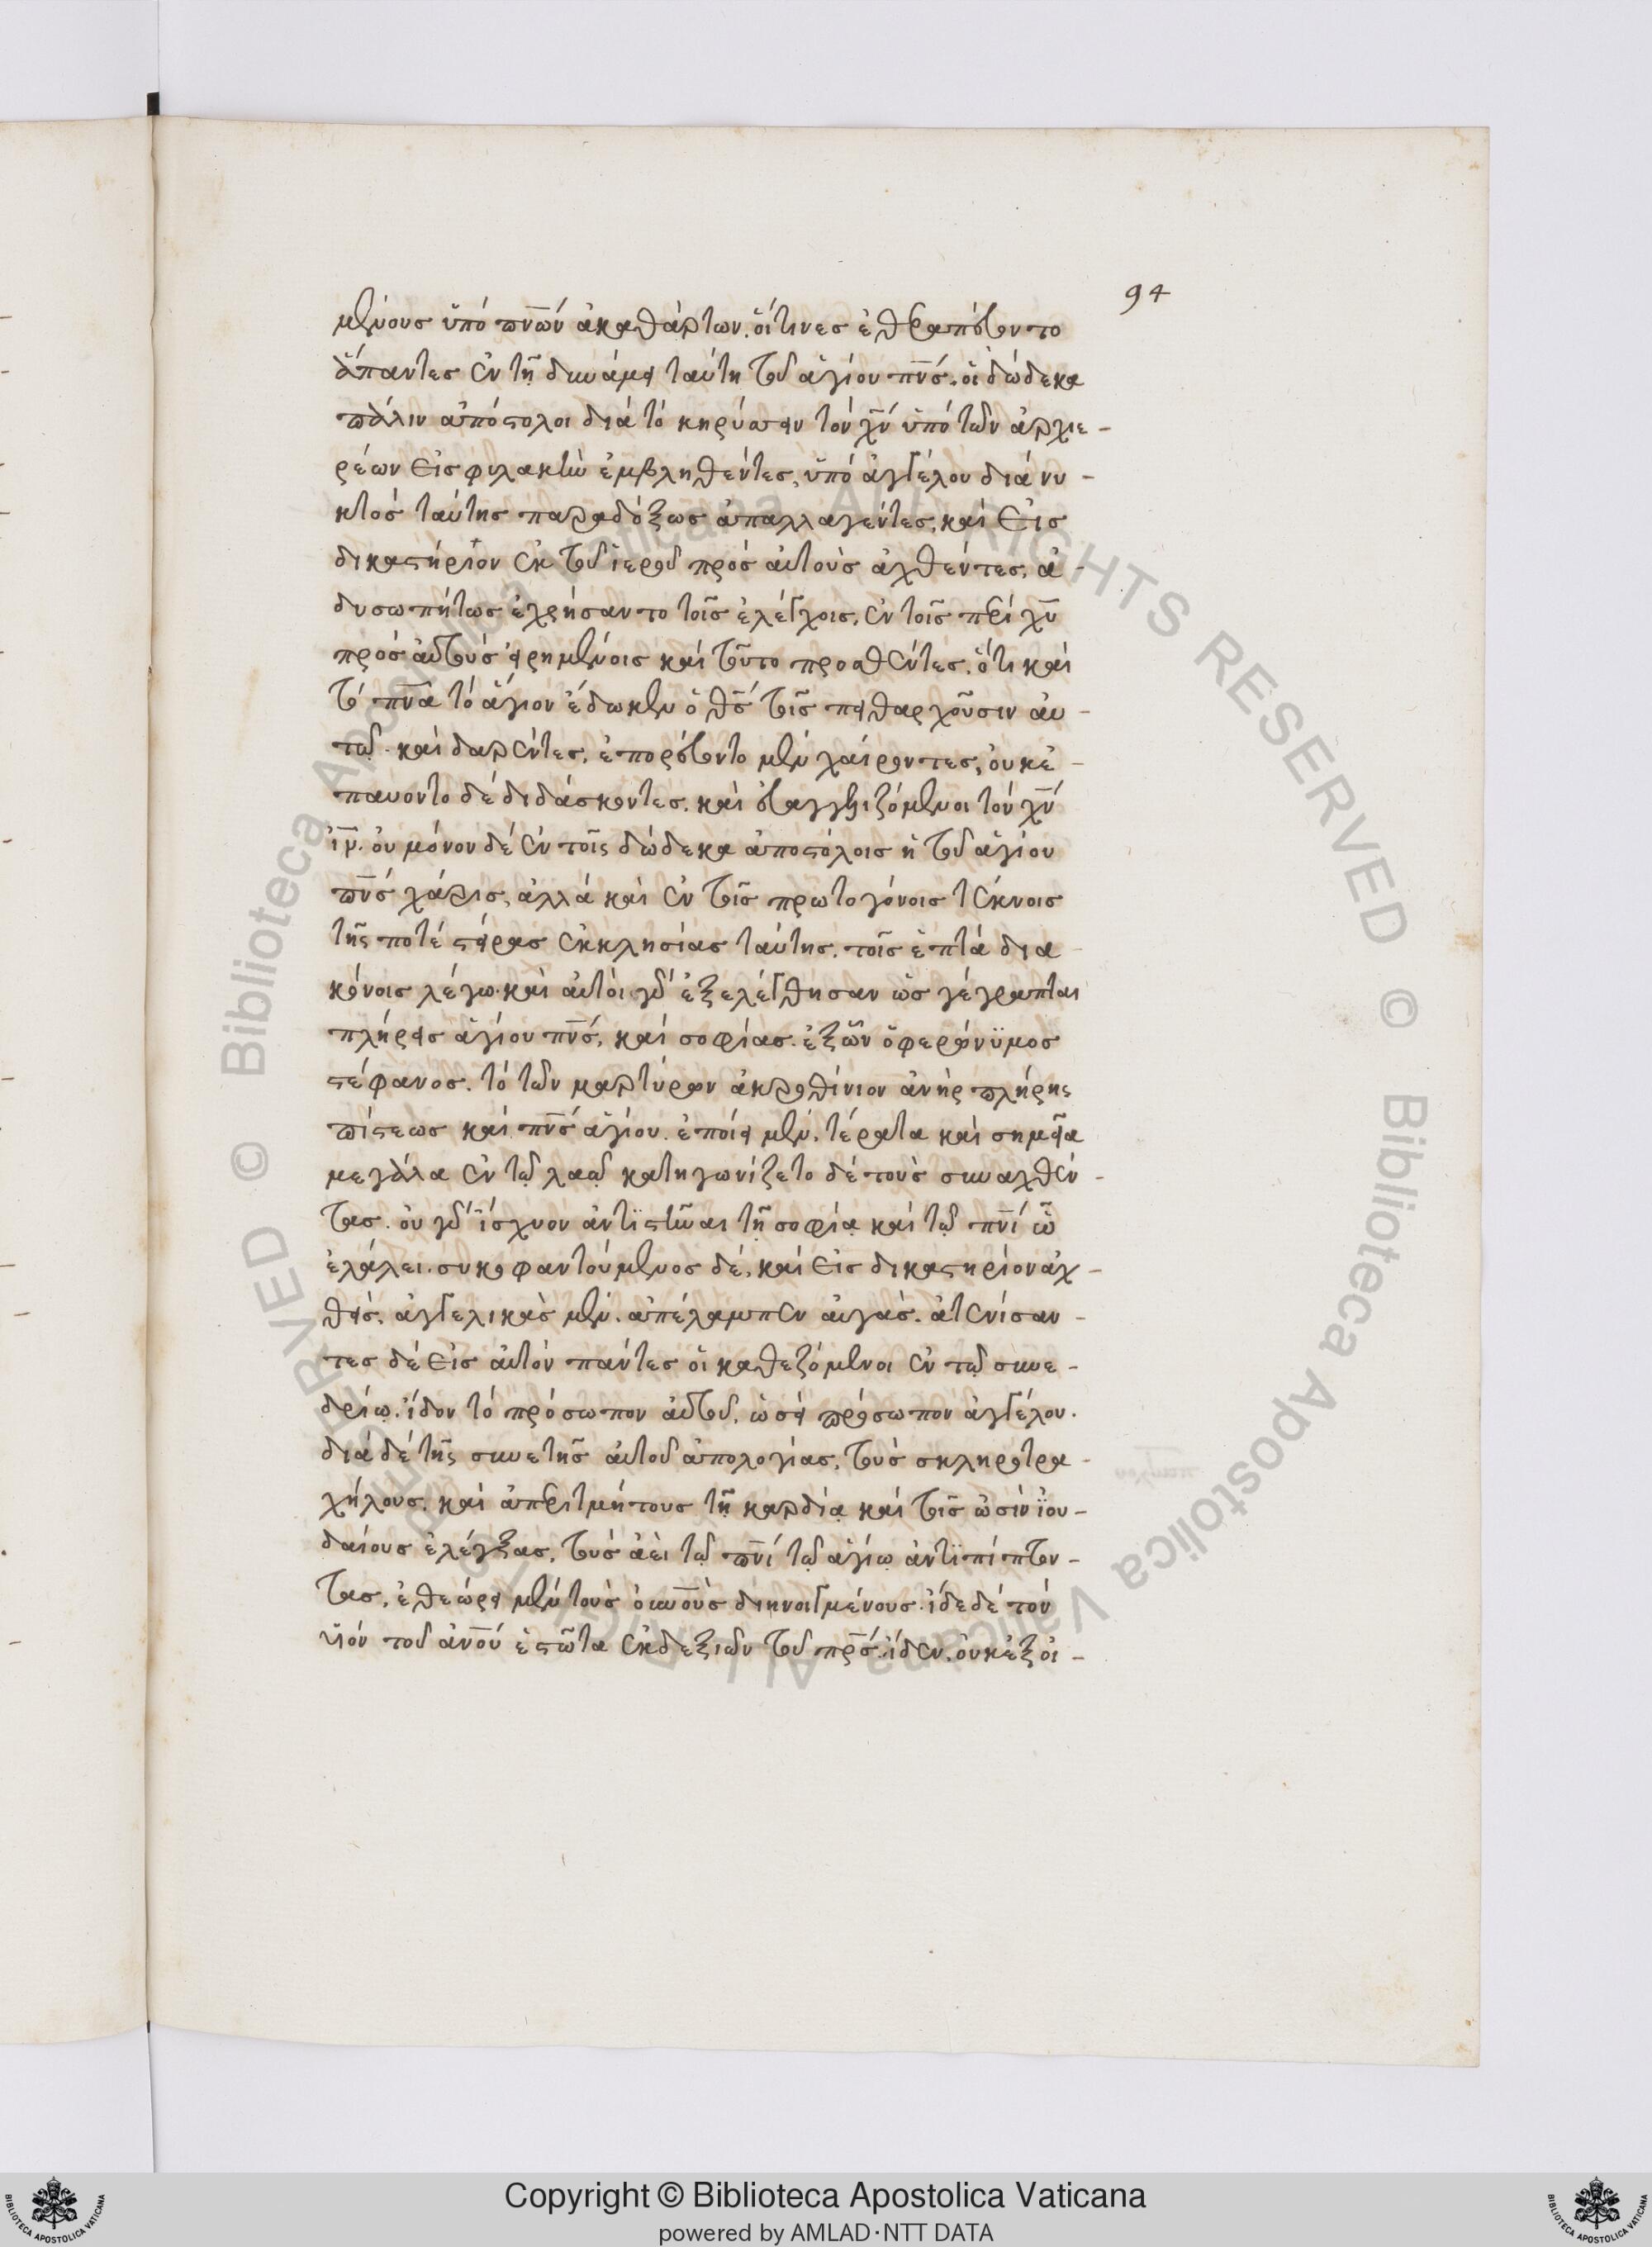 94
μένους ὑπό πν̅ων ἀκαθάρτων. ὅιτινες ἐθεραπέυοντο
ἅπαντες ἐν τῇ δυνάμει ταύτη τοῦ ἁγίου πν̅ς. οἱ δώδεκα
πάλιν ἀπόστολοι διά τό κηρύσσειν τόν χν̅ ὑπό τῶν ἀρχιε-
ρέων εἰς φυλακὴν ἐμβληθέντες, ὑπό ἀγγέλου διά νυ-
κτός ταύτης παραδόξως ἀπαλλαγέντες, καί εἰς
δικαστήριον ἐκ τοῦ ἱεροῦ πρός αὐτοὺς ἀχθέντες, ἀ-
δυσωπήτως ἐχρήσαντο τοῖς ἐλέγχοις, ἐν τοῖς περί χυ̅
πρός αὐτούς εἰρημένοις καί τοῦτο προσθέντες, ὅτι καί
τό πν̅α τό ἅγιον ἔδωκεν ὁ θς̅ τοῖς πειθαρχοῦσιν αυ-
τῷ. καί δαρέντες, ἐπορέυοντο μέν χαίροντες, ὀυκ ἐ-
παυοντο δέ διδάσκοντες. καί ἐυαγγελιζόμενοι τόν χν̅
ιν̅. ὀυ μόνον δέ ἐν τοῖς δώδεκα ἀποστόλοις ἡ τοῦ ἁγίου
πν̅ς χάρις, ἀλλά καί ἐν τοῖς πρωτογόνοις τέκνοις
τῆς ποτέ στείρας ἐκκλησίας ταύτης. τοῖς ἑπτά δια-
κόνοις λέγω. καί αὐτοὶ γάρ ἐξελέγθησαν ὡς γέγραπται
πλήρεις ἁγίου πν̅ς, καί σοφίας. ἐξ ὧν ὁ φερώνϋμος
στέφανος. τό τῶν μαρτύρων ἀκροθίνιον ἀνήρ πλήρης
πίστεως καί πν̅ς ἁγίου. ἐποίει μέν, τέρατα καί σημεῖα
μεγάλα ἐν τῷ λαῷ κατηγωνίζετο δέ τοὺς συναχθέν-
τας. ὀυ γάρ ἴσχυον ἀντϊστῆναι τῇ σοφίᾳ καί τῷ πν̅ι ὧ
ἐλάλει. συκοφαντούμενος δέ, καί εἰς δικαστηρίον ἀχ-
θείς, ἀγγελικὰς μέν. ἀπέλαμπεν ἀυγάς. ἀτενίσαν-
τες δέ εἰς αὐτόν παντες οἱ καθεζόμενοι ἐν τῷ συνε-
δρίῳ. ἴδον τό πρόσωπον αὐτοῦ, ὡσεί πρόσωπον ἀγγέλου.
διά δέ τῆς συνετῆς αὐτοῦ ἀπολογίας, τούς σκληροτρα-
χήλους, καί ἀπεριτμήτους τῇ καρδίᾳ καί τοῖς ὠσίν ϊου-
δαίους ἐλέγξας, τούς ἀεί τῷ πν̅ι τῷ ἁγίῳ ἀντϊπίπτον-
τας, ἐθεώρει μέν τοὺς ὀυν̅ους διηνοιγμένους. ἰδε δέ τόν
υἱόν τοῦ ἀν̅ου ἑστῶτα ἐκ δεξιῶν τοῦ πρ̅ς. ἰδεν. ὀυκ ἐξ ὀι-
Copyright © Biblioteca Apostolica Vaticana
powered by AMLAD·NTT DATA